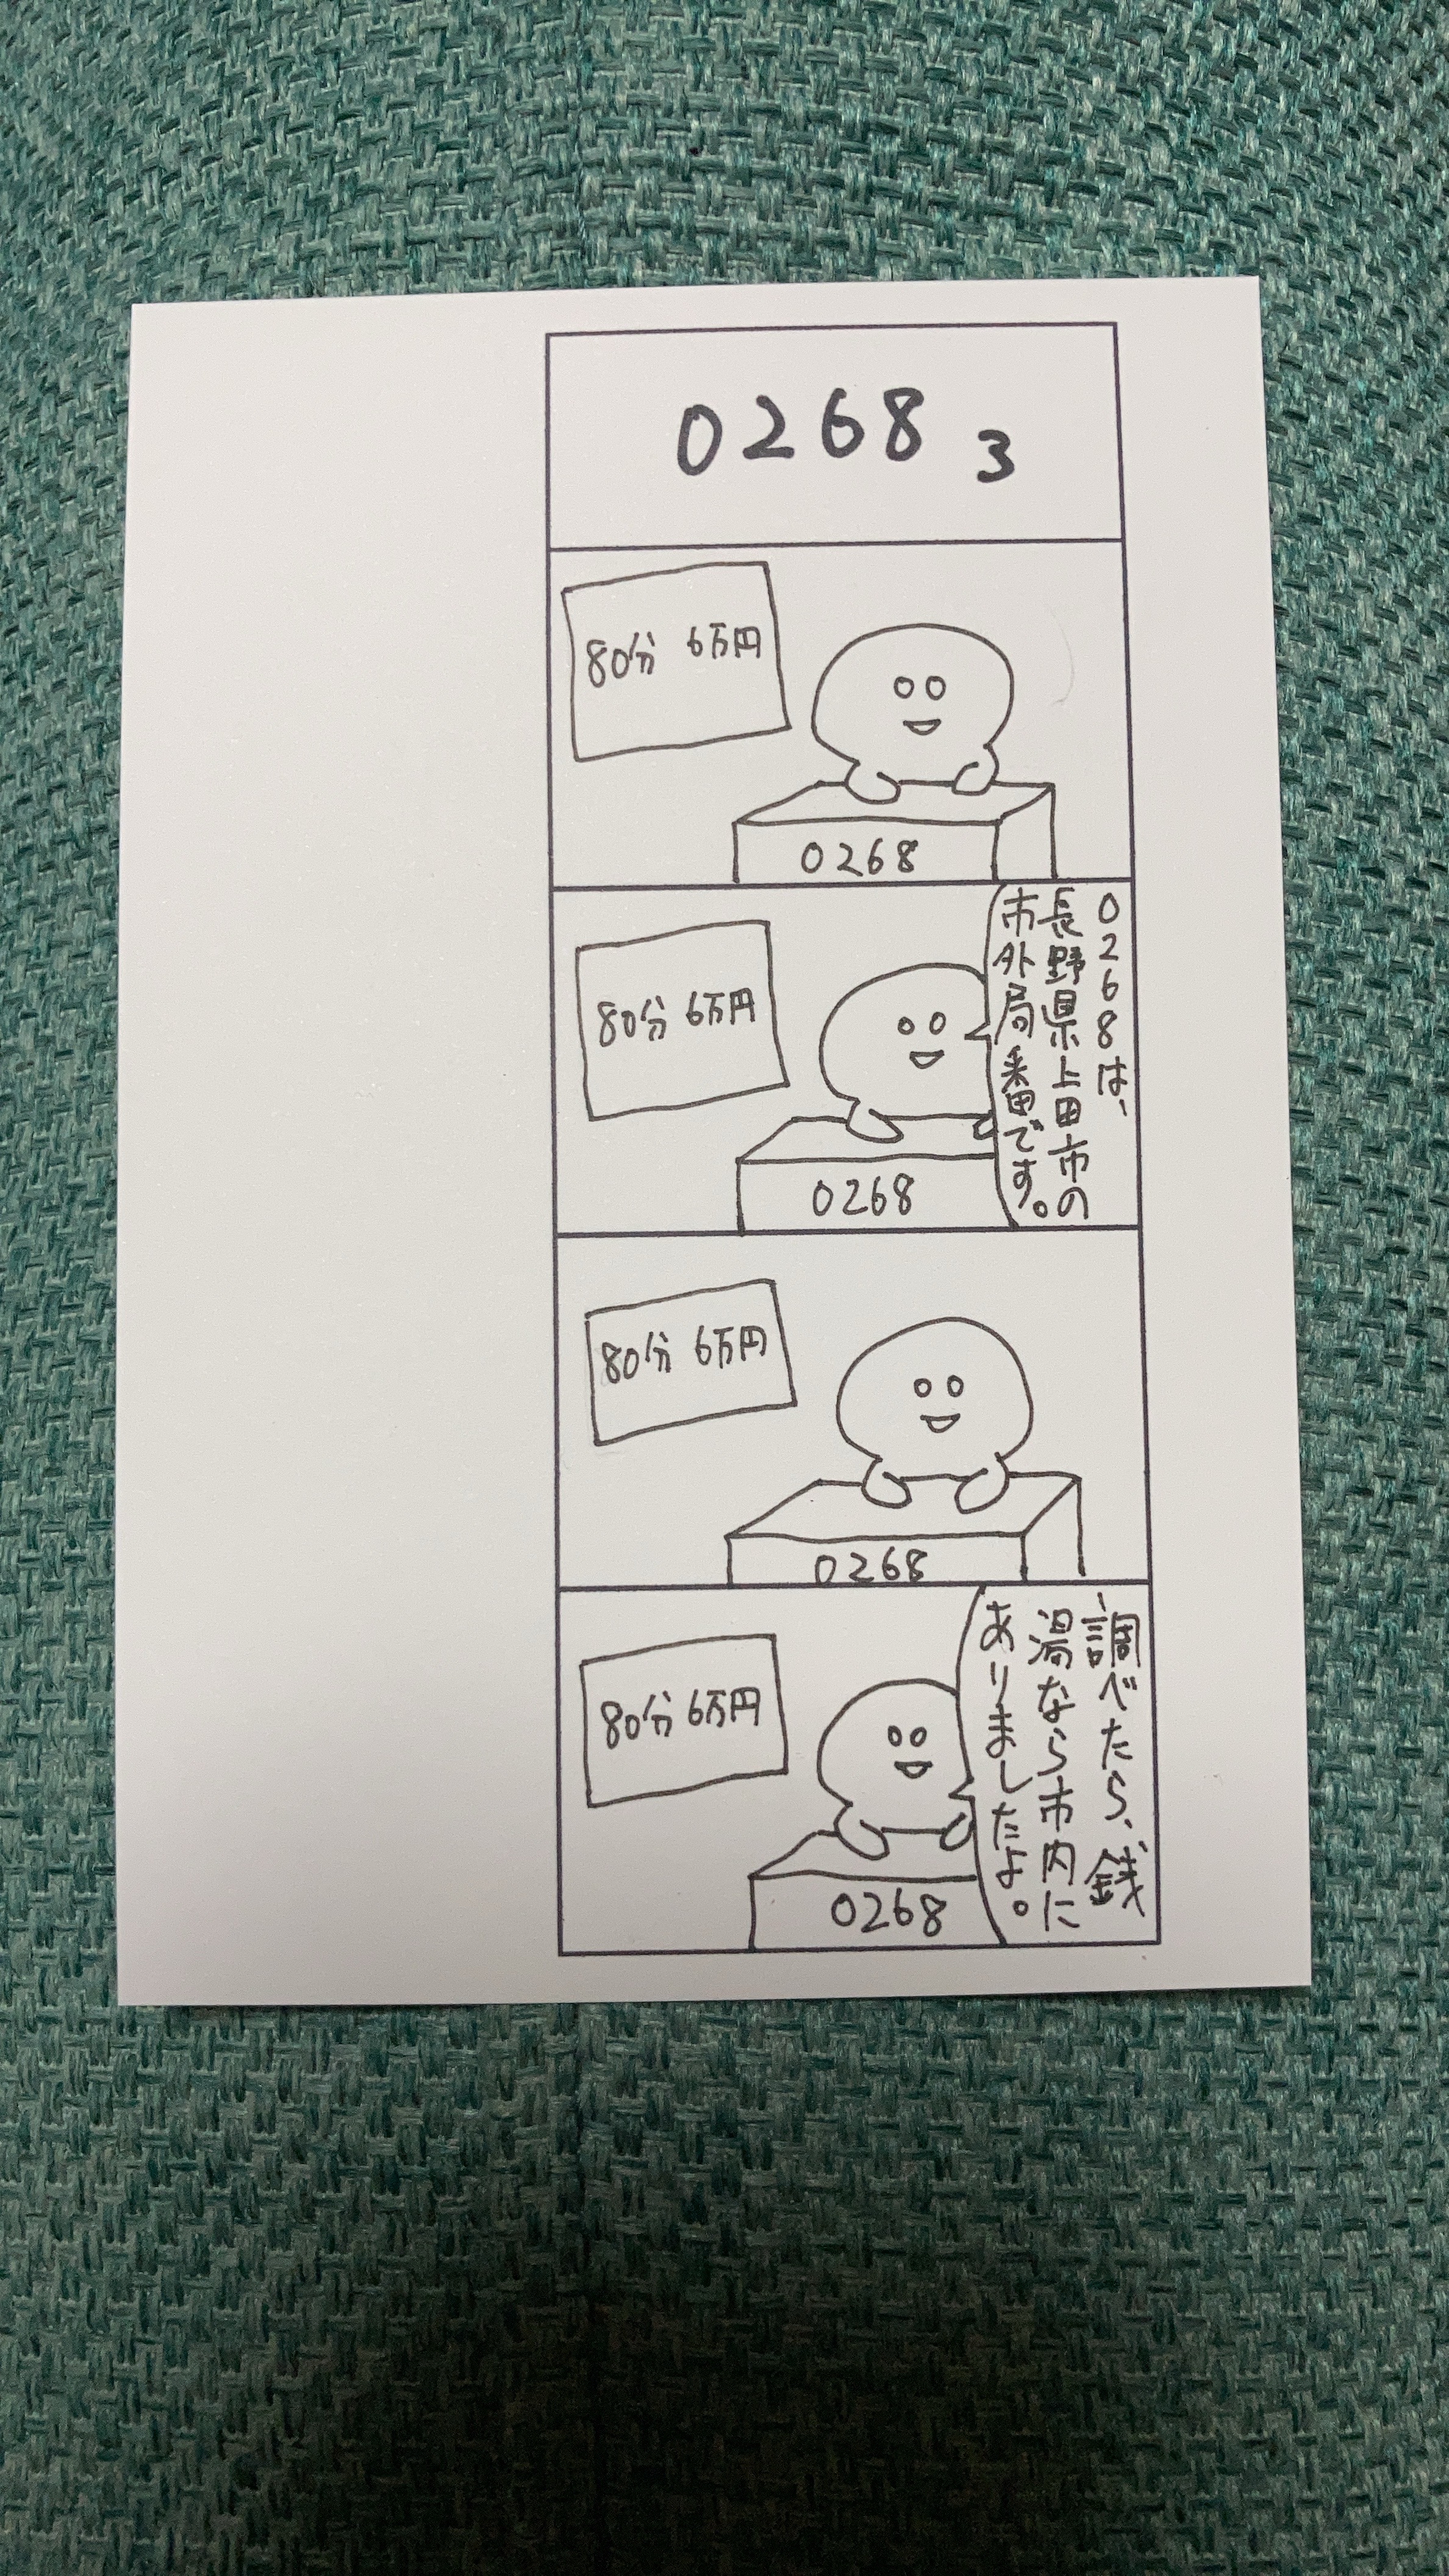 0268 3
80分 6万円
0268
0268は、
長野県上田市の
市外局番です。
80分 6万円
0268
80分 6万円
0268
調べたら、銭
湯なら市内に
ありましたよ。
80分 6万円
0268